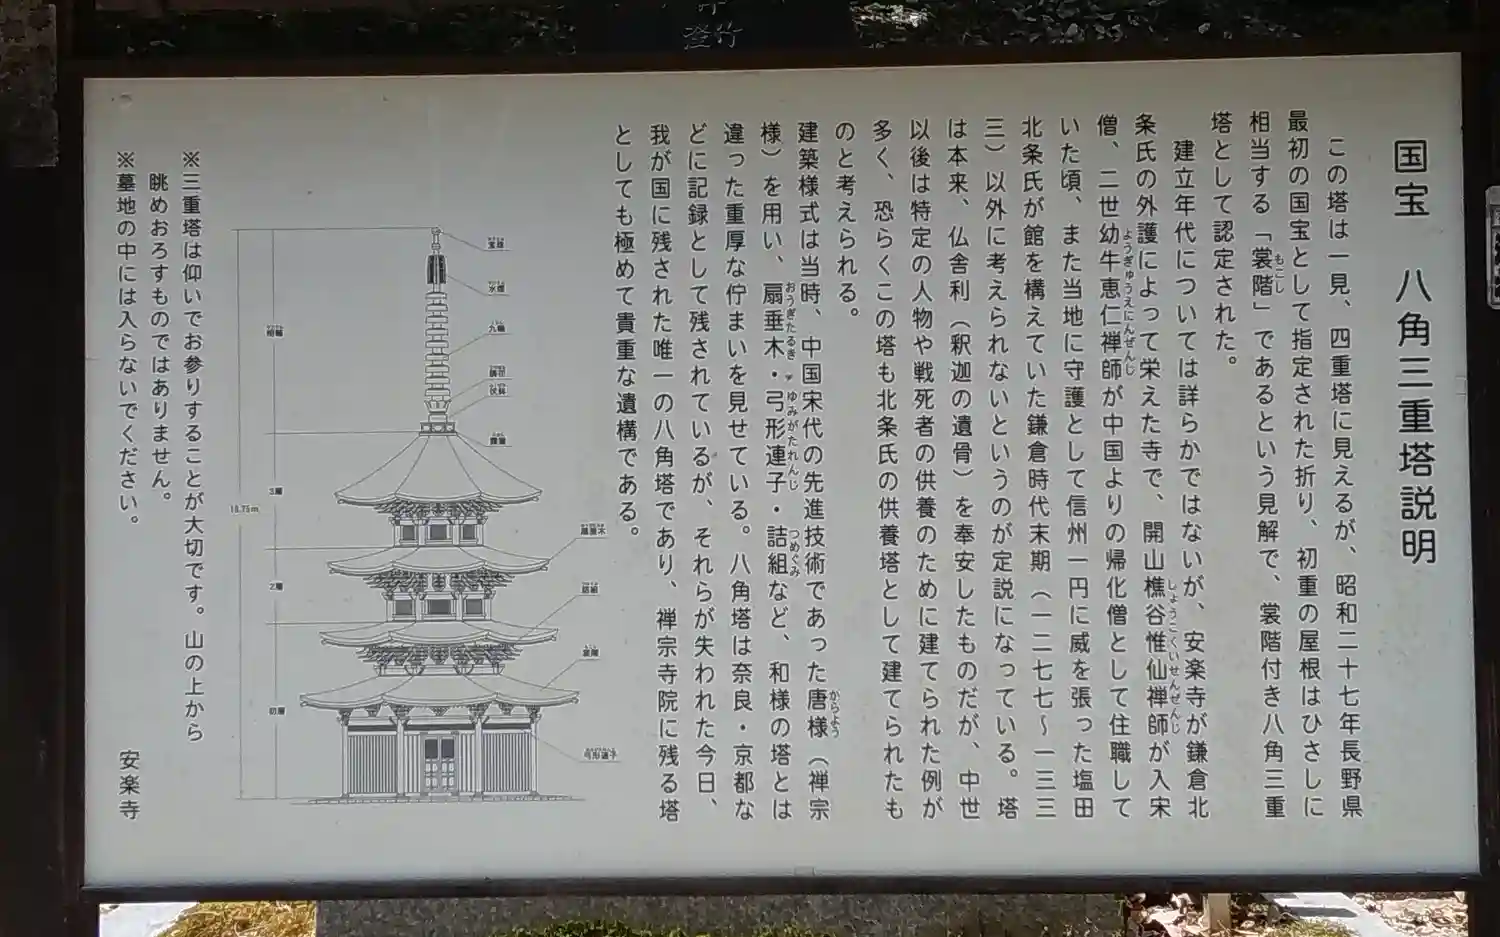 国宝　八角三重塔説明
この塔は一見、四重塔に見えるが、昭和二十七年長野県
最初の国宝として指定された折り、初重の屋根はひさしに
相当する「裳階」であるという見解で、裳階付き八角三重
もこし
塔として認定された。
建立年代については詳らかではないが、安楽寺が鎌倉北
条氏の外護によって栄えた寺で、開山樵谷惟仙禅師が入宋
しょうこくいせんぜんじ
僧、二世幼牛恵仁禅師が中国よりの帰化僧として住職して
ようぎゅうえにんぜんじ
いた頃、また当地に守護として信州一円に威を張った塩田
北条氏が館を構えていた鎌倉時代末期（一二七七～一三三
三）以外に考えられないというのが定説になっている。塔
は本来、仏舎利（釈迦の遺骨）を奉安したものだが、中世
以後は特定の人物や戦死者の供養のために建てられた例が
多く、恐らくこの塔も北条氏の供養塔として建てられたも
のと考えられる。
建築様式は当時、中国宋代の先進技術であった唐様（禅宗
からよう
様）を用い、扇垂木・弓形連子・詰組など、和様の塔とは
おうぎたるき
ゆみがたれんじ
つめぐみ
違った重厚な佇まいを見せている。八角塔は奈良・京都な
どに記録として残されているが、それらが失われた今日、
我が国に残された唯一の八角塔であり、禅宗寺院に残る塔
としても極めて貴重な遺構である。
宝珠
水煙
九輪
請花
伏鉢
露盤
相輪
3層
18.75m
2層
初層
扇垂木
詰組
裳階
弓形連子
※三重塔は仰いでお参りすることが大切です。山の上から
眺めおろすものではありません。
※墓地の中には入らないでください。
安楽寺